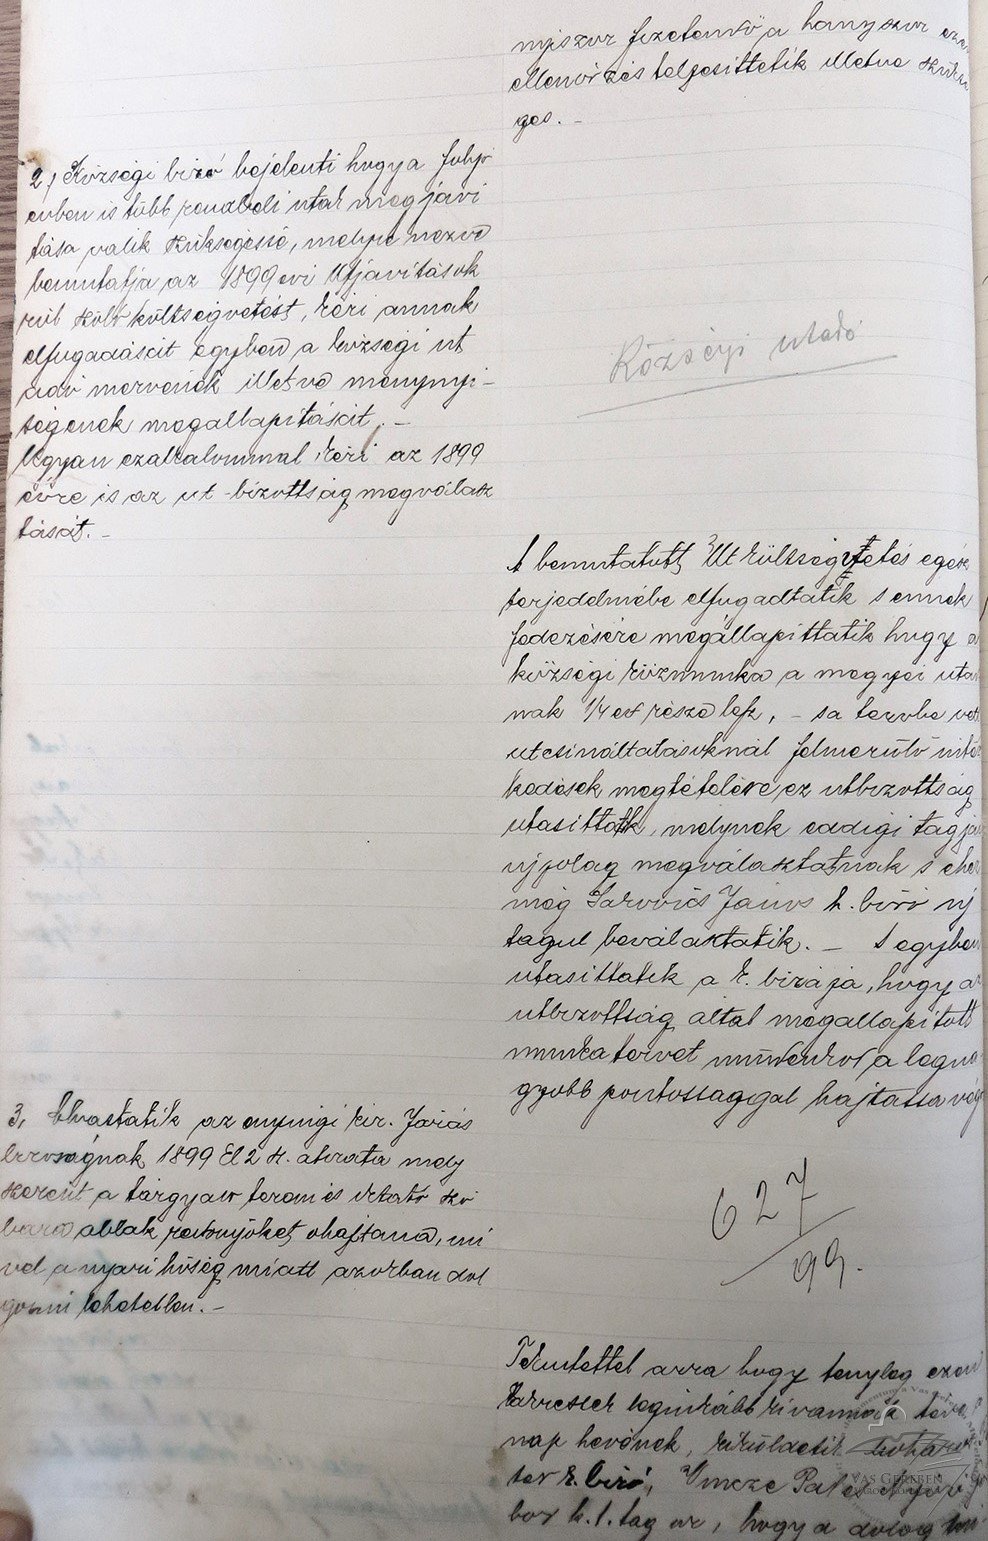 nyiszor fizetendő a hányszor ezen
ellenőrzés teljesittetik illetve szüksé
ges. -
2, Községi biró bejelenti hogy a folyó
évben is több rendbeli utak megjaví
tása válik szükségessé, melyre nézve
bemutatja az 1899 évi útjavitások
ról szóló költségvetést, kéri annak
elfogadását egyben a községi út
adó mérvének illetve mennyi-
ségének megállapitását. -
Ugyan ez alkalommal kéri az 1899
évre is az ut-bizottság megválasz
tását. -
Községi utadó
A bemutatott Ut költségvetés egész
terjedelmébe elfogadtatik s ennek
fedezésére megállapittatik hogy a
községi közmunka a megyei utad
nak 1/4 ed része lesz, - s a tervbe vett
utcsináltatásoknál felmerülő intéz
kedések megtételére az utbizottság
utasittatik, melynek eddigi tagjai
újolag megválasztatnak s ehez
még János h. biró új
tagul beválasztatik. - S egyben
utasittatik a k. birája, hogy az
utbizottság által megállapitott
munkatervet mindenkor a legna
gyobb pontossággal hajtassa vég
3, Olvastatik az enyingi kir. Járás
biróságnak 1899 El 2 sz. átirata mely
szerint a tárgyaló terem és iktató szo
bára ablak redőnyöket ohajtana, mi
vel a nyári hőség miatt azokban dol
gozni lehetetlen. -
627
/99.
Tekintettel arra hogy tényleg ezen
legінkább kivannak téve a
nap hevének, kiküldetik
ter k. biró, Vincze Pál és
bor k. t. tag ur, hogy a dolog
VAS GEREBEN